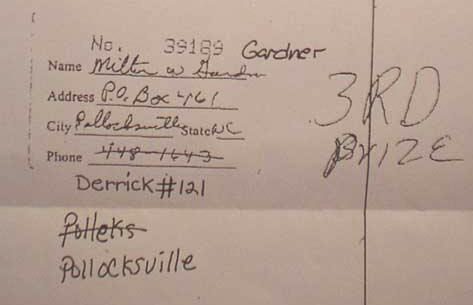 No. 39189 Gardner
Name Milton W Gardner
Address P.O. Box 461
City Pollocksville State NC
Phone 448-1643
3RD
PRIZE
Derrick #121
Polleks
Pollocksville